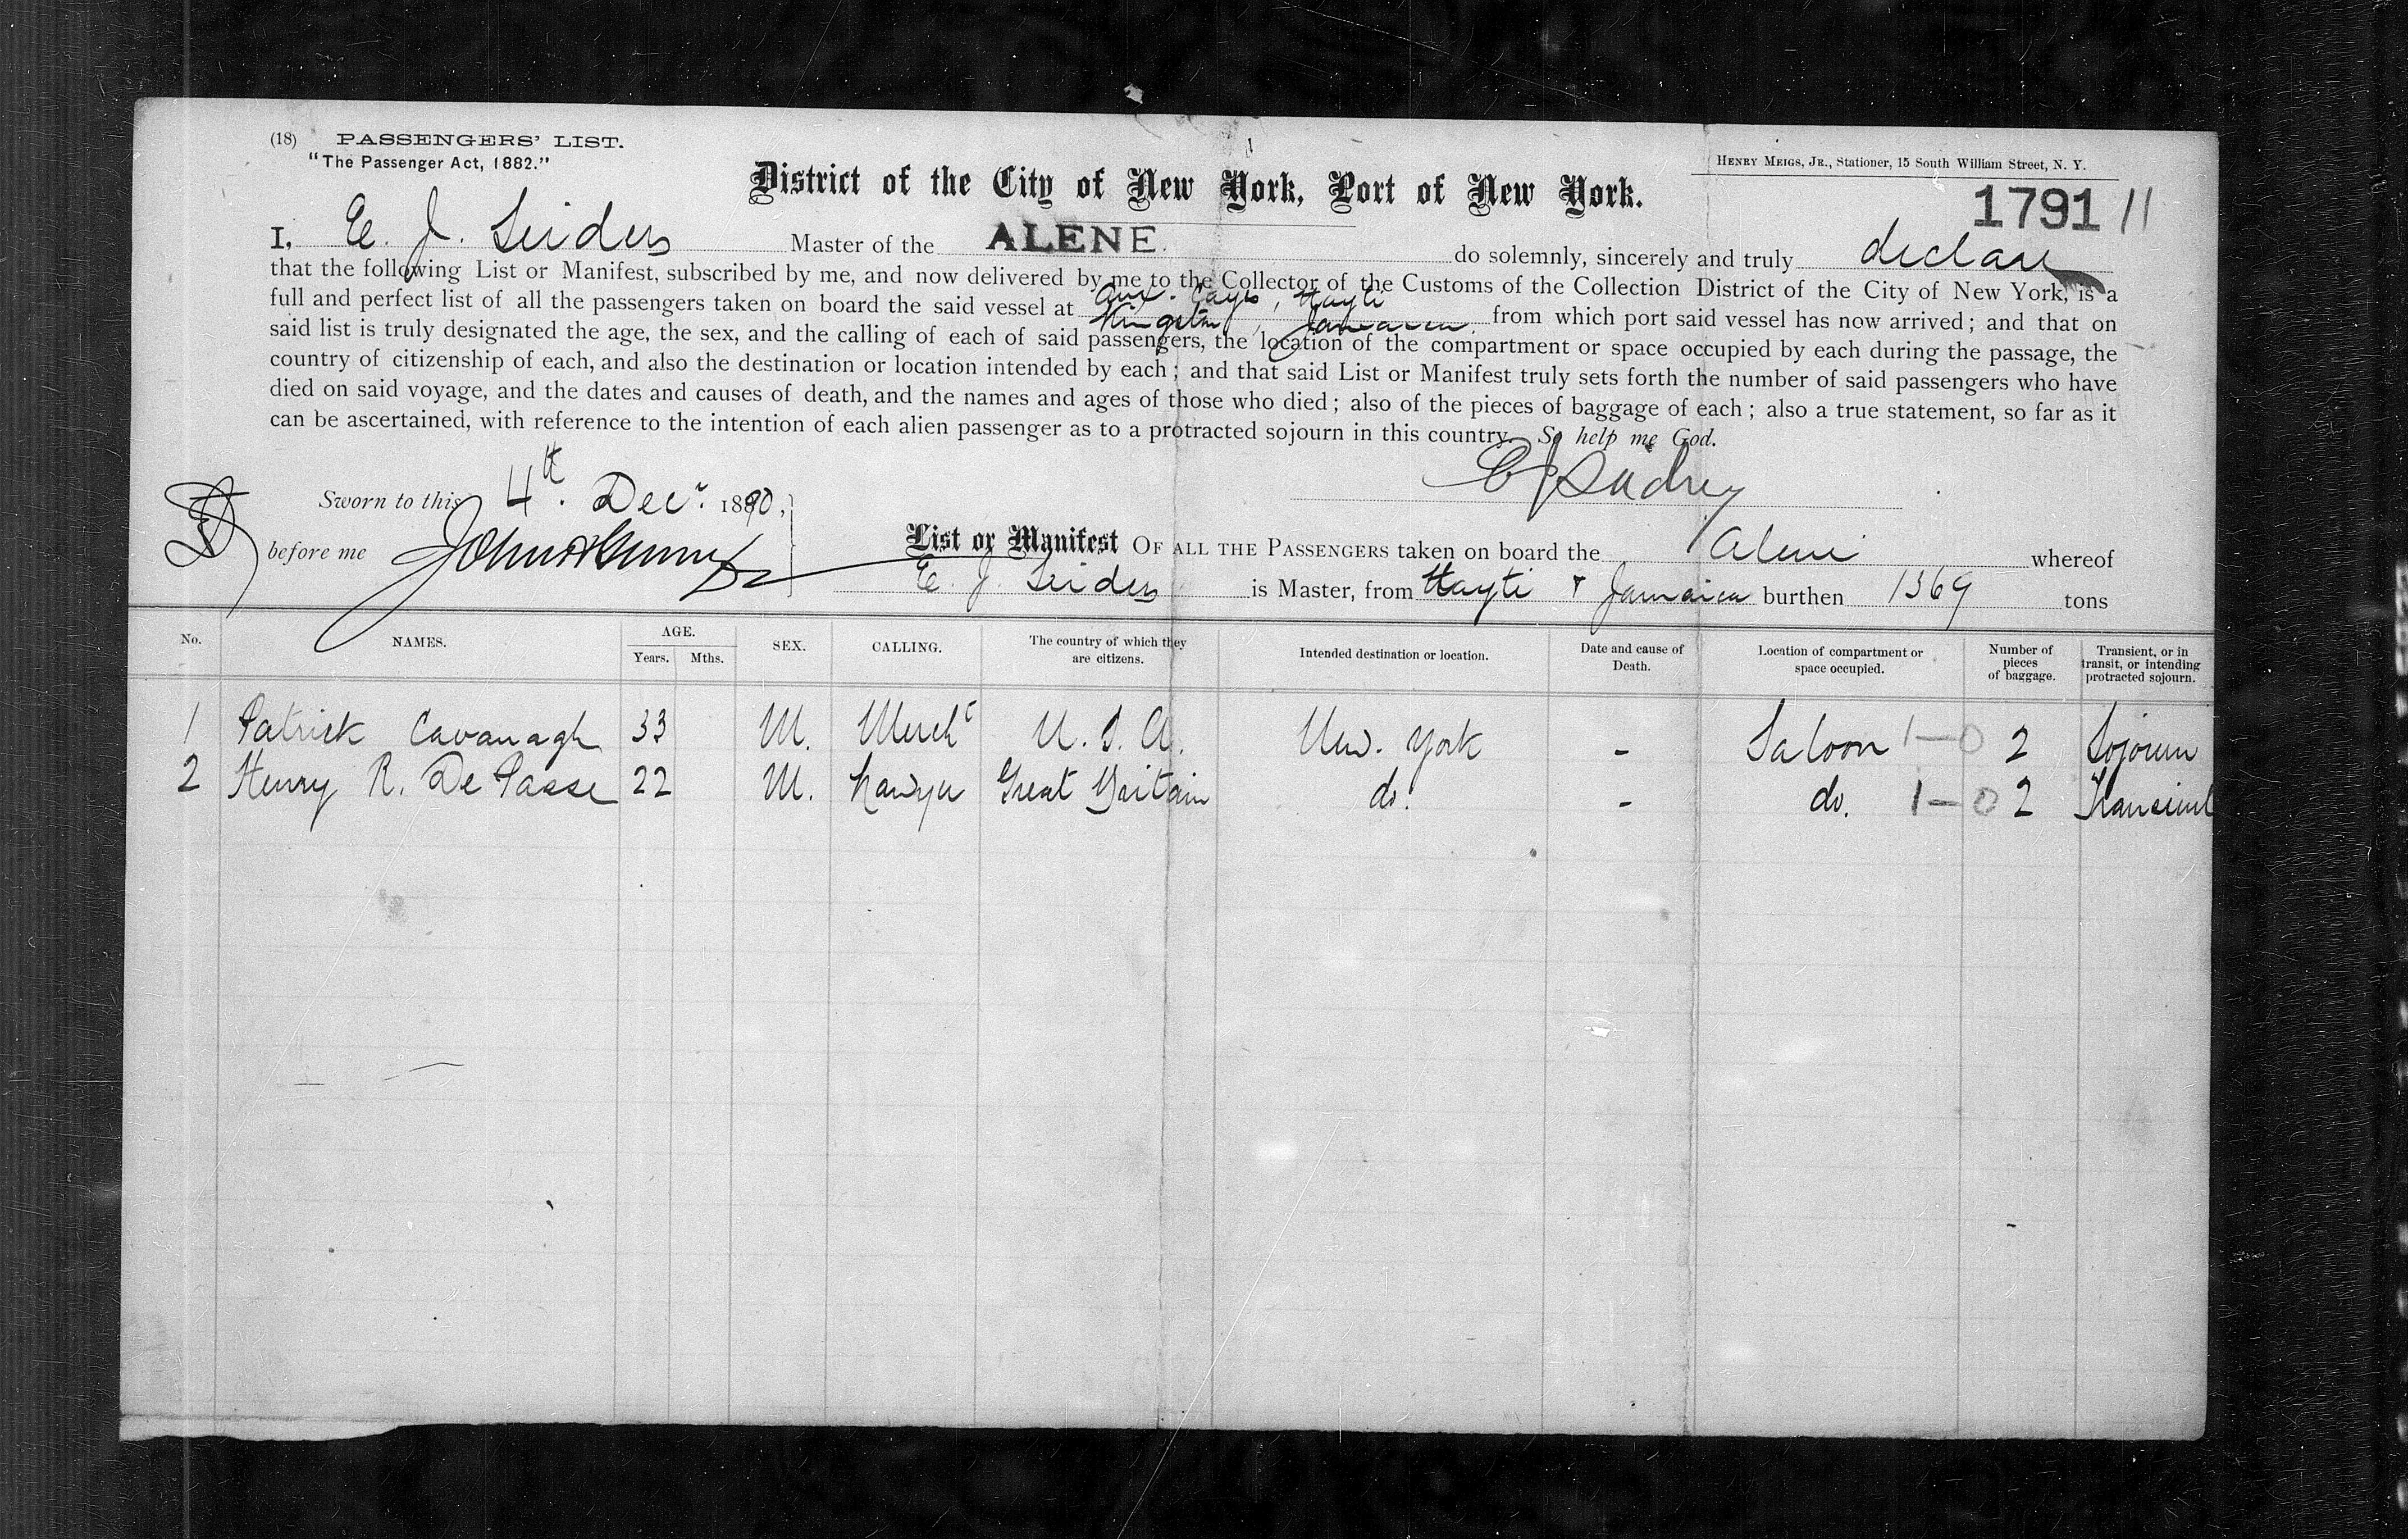 (18) PASSENGERS' LIST.
"The Passenger Act, 1882."
HENRY MEIGS, JR., Stationer, 15 South William Street, N. Y.
District of the City of New York, Port of New York.
1791 11
I, E. J. Seiders Master of the ALENE. do solemnly, sincerely and truly declare
that the following List or Manifest, subscribed by me, and now delivered by me to the Collector of the Customs of the Collection District of the City of New York, is a
full and perfect list of all the passengers taken on board the said vessel at Aux. Cayes, Hayti
Kingston, Jamaica from which port said vessel has now arrived; and that on
said list is truly designated the age, the sex, and the calling of each of said passengers, the location of the compartment or space occupied by each during the passage, the
country of citizenship of each, and also the destination or location intended by each; and that said List or Manifest truly sets forth the number of said passengers who have
died on said voyage, and the dates and causes of death, and the names and ages of those who died; also of the pieces of baggage of each; also a true statement, so far as it
can be ascertained, with reference to the intention of each alien passenger as to a protracted sojourn in this country. So help me God.
Sworn to this 4th. Decr. 1890,
before me
List or Manifest OF ALL THE PASSENGERS taken on board the Alene whereof
E. J. Seiders is Master, from Hayti & Jamaica burthen 1369 tons
No. NAMES. AGE. Years. Mths. SEX. CALLING. The country of which they are citizens. Intended destination or location. Date and cause of Death. Location of compartment or space occupied. Number of pieces of baggage. Transient, or in transit, or intending protracted sojourn.
1 Patrick Cavanagh 33 M. Mercht U. S. A. New. York - Saloon 1-0 2 Sojourn
2 Henry R. De Passe 22 M. Lawyer Great Britain do. - do. 1-0 2 Transient